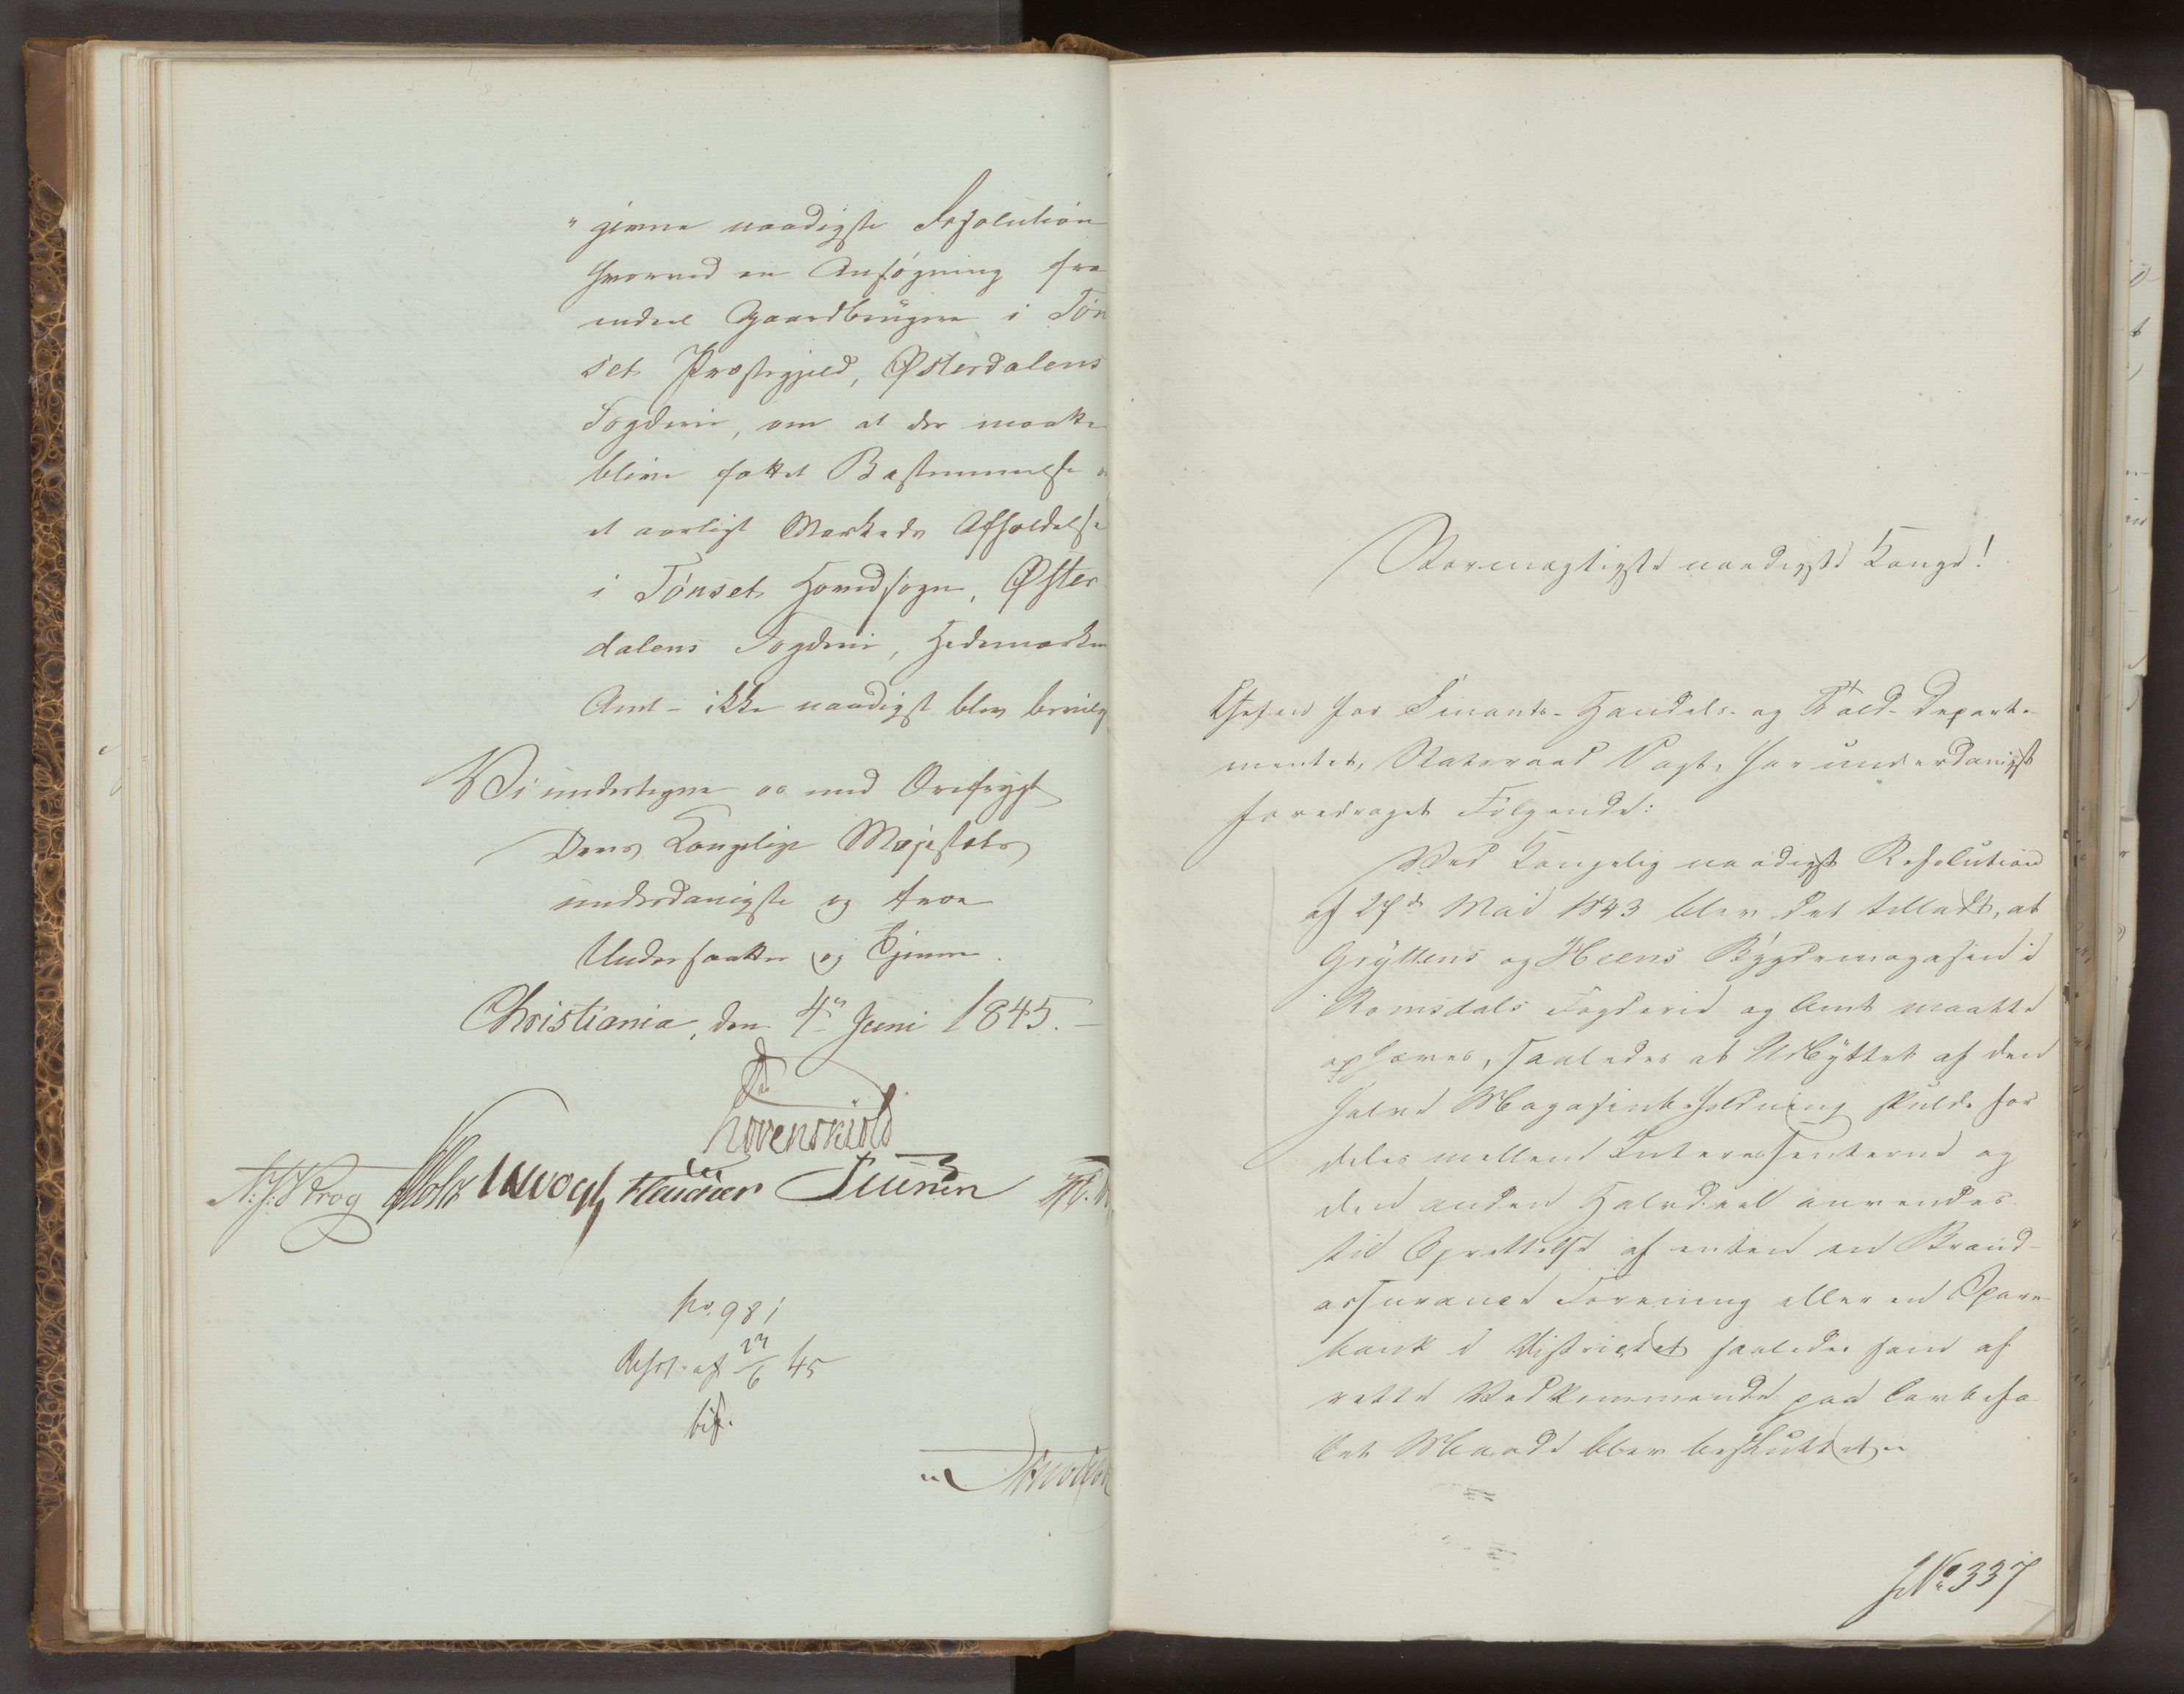 "givne naadigste Resolution
hvorved en Ansøgning fra
endeel Gaardbrugere i Tøn
set Præstegjeld, Østerdalens
Fogderie, om at der maatte
blive fattet Bestemmelse
et aarligt Markeds Afholdelse
i Tønset Hovedsogn, Øster
dalens Fogderie, Hedemarkens
Amt - ikke naadigst blev bevilg
Vi undertegne os med Ærefrygt
Deres Kongelige Majestæts
underdanigste og troe
Undersaatter og Tjenere.
Christiania, den 4de Juni 1845. -
Løvenskiold
N: J: Krog Holst Vogt
No. 981
Resol. af 23/6 45
bif.
Stormægtigste naadigste Konge!
Chefen for Finants- Handels- og Told-Departe-
mentet, Statsraad Vogt, har underdanigst
foredraget Følgende:
Ved Kongelig naadigst Resolution
af 27de Mai 1843 blev det tilladt, at
Gryttens og Heens Bygdemagasin i
Romsdals Fogderie og Amt maatte
ophæves, saaledes at Udbyttet af den
halve Magasinbeholdning skulde for
deles mellem Interessenterne og
den anden Halvdeel anvendes
til Oprettelse af enten en Brand-
assurance Forening eller en Spare-
bank i Districtet saaledes som af
rette Vedkommende paa lovbefa
let Maade blev besluttet.
No 337